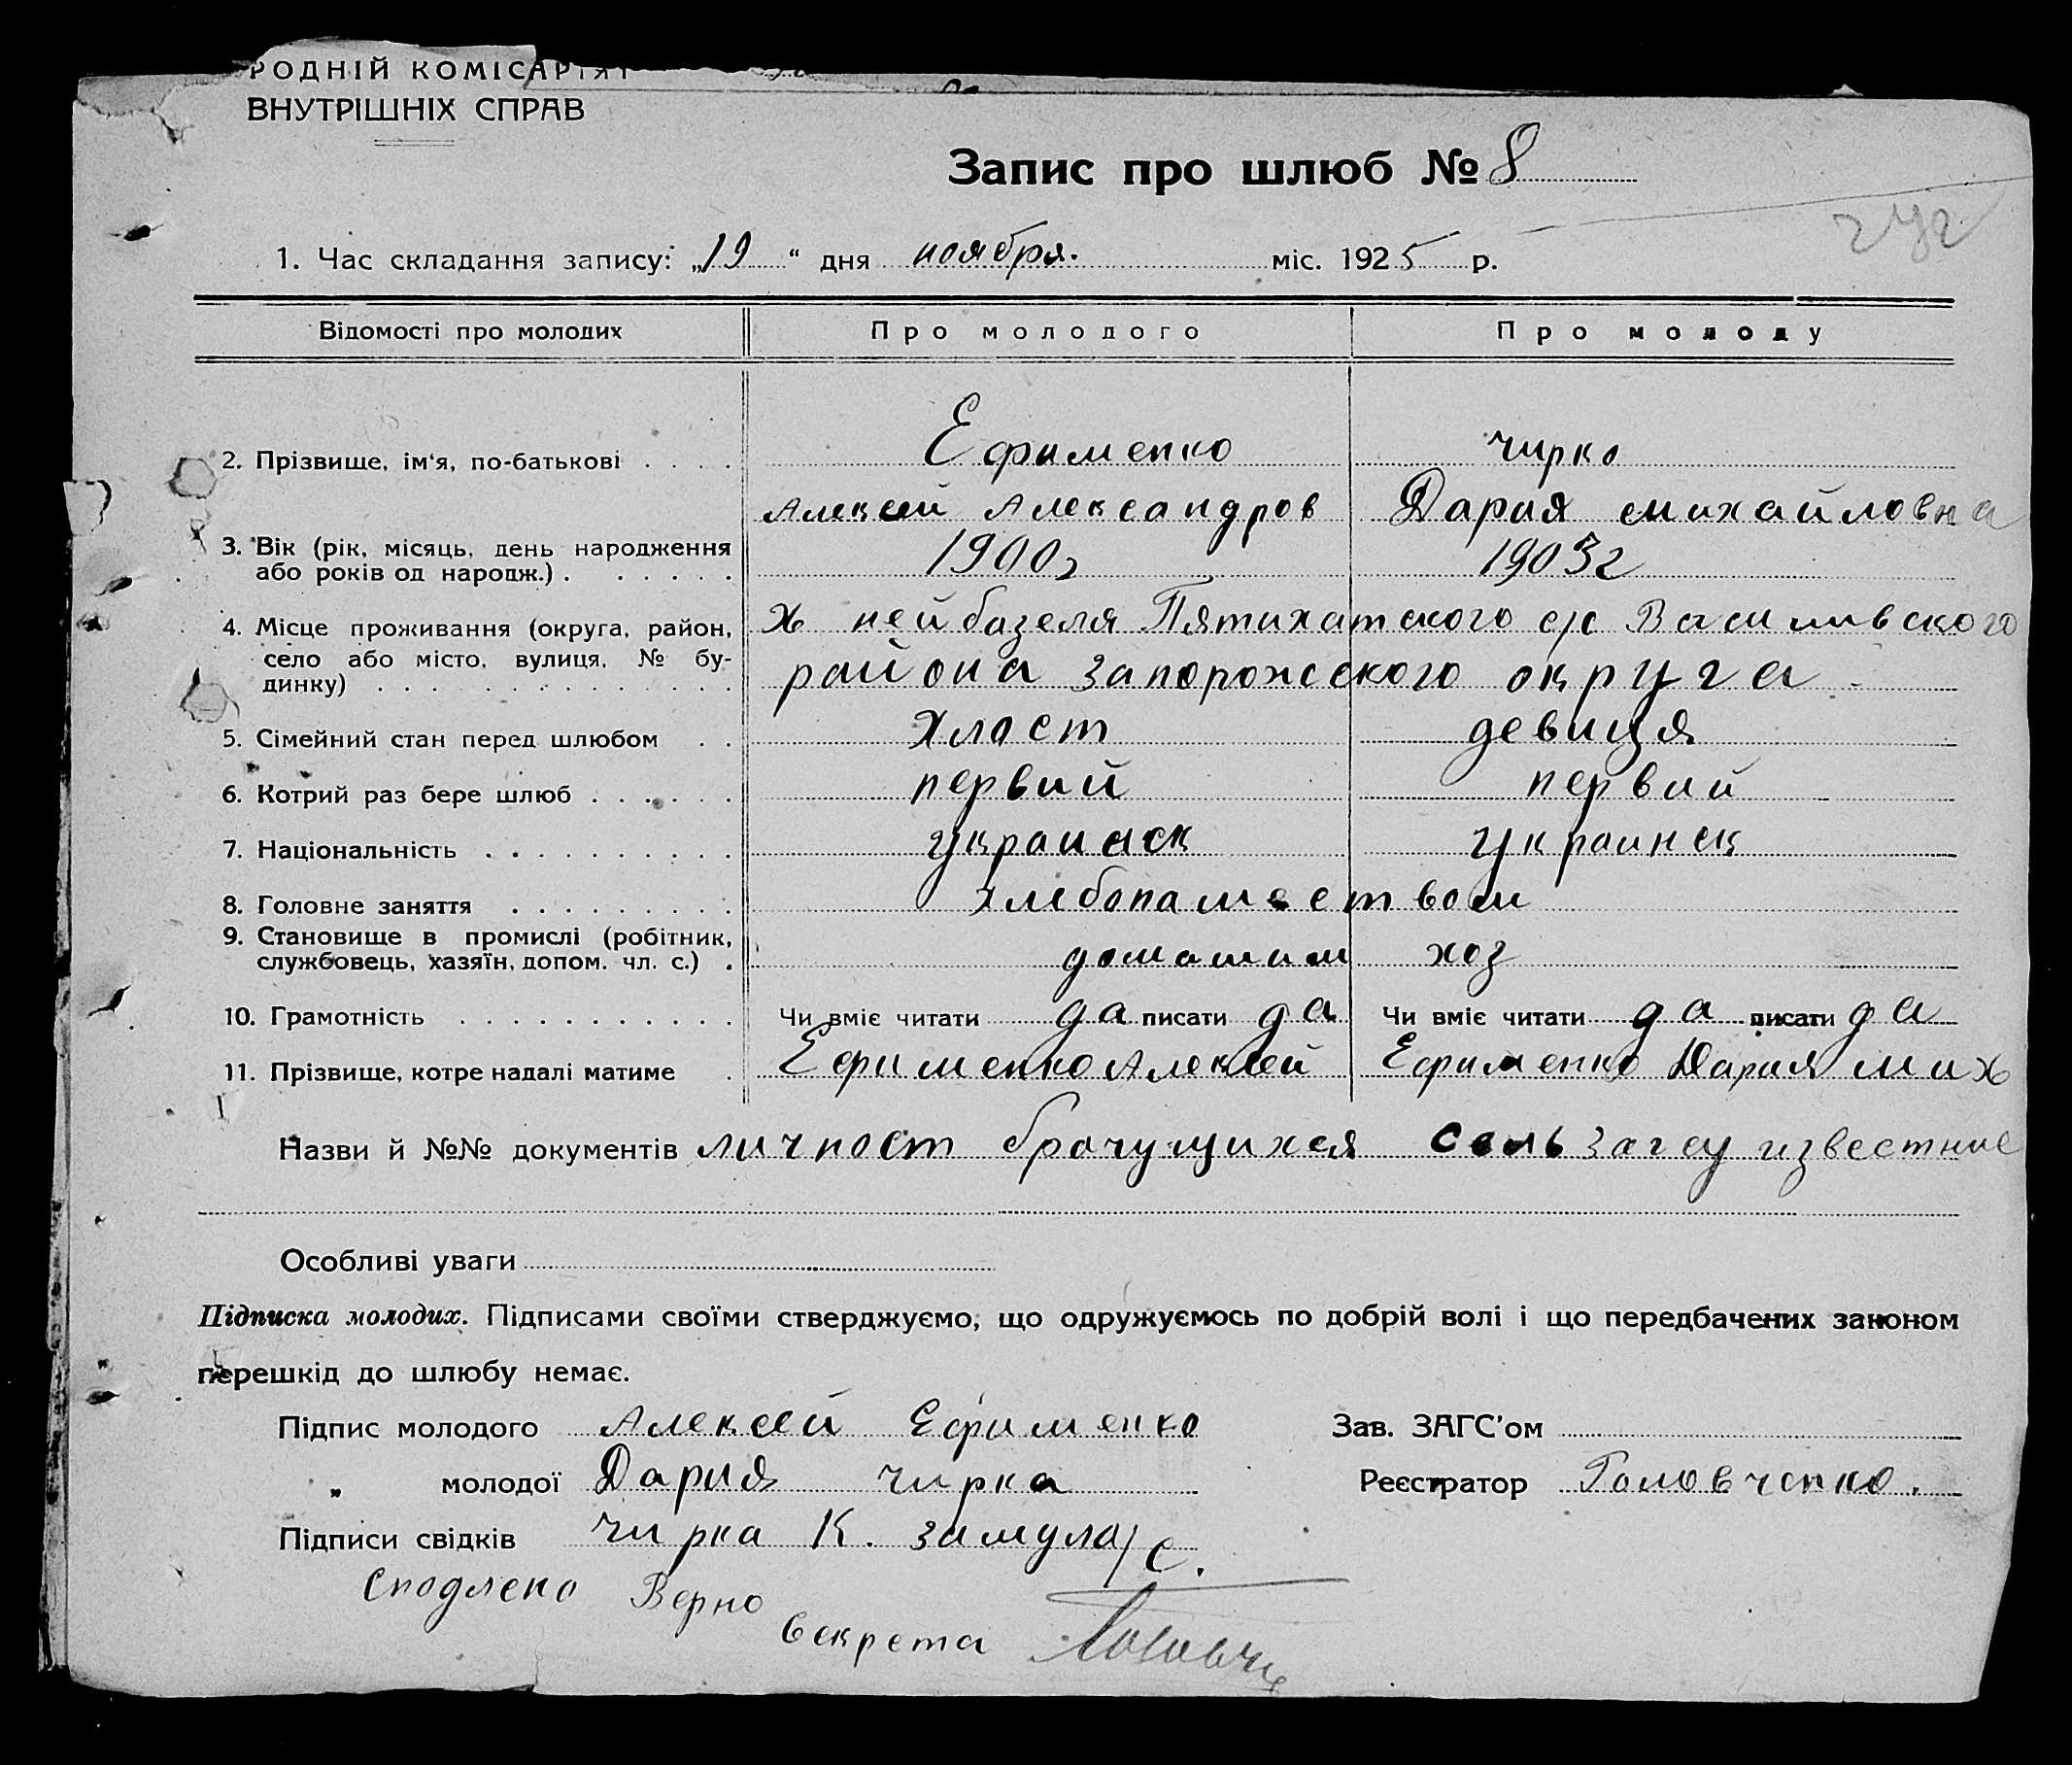 РОДНІЙ КОМІСАРІЯТ
ВНУТРІШНІХ СПРАВ
Запис про шлюб № 8
1. Час складання запису: „19“ дня ноября. міс. 1925 р.
Відомості про молодих Про молодого Про молоду
2. Прізвище, ім'я, по-батькові . . . . Ефименко Чирко
Алексей Александров Дария михайловна
3. Вік (рік, місяць, день народження
або років од народж.) . . . . . . 1900г 1903г
4. Місце проживання (округа, район, х нейбазеля Пятихатского с/с Василивского
село або місто, вулиця, № бу-
динку) . . . . . . . . . . . . . района запорожского округа
5. Сімейний стан перед шлюбом . . Хлост девиця
6. Котрий раз бере шлюб . . . . . . первий первий
7. Національність . . . . . . . . . . украинск украинск
8. Головне заняття . . . . . . . . . хлебопашеством
9. Становище в промислі (робітник,
службовець, хазяїн, допом. чл. с.) . домашим хоз
10. Грамотність . . . . . . . . . . . . Чи вміє читати да писати да Чи вміє читати да писати да
11. Прізвище, котре надалі матиме . Ефименко Алексей Ефименко Дария мих
Назви й №№ документів личност брачущихся сельзагсу известние
Особливі уваги
Підписка молодих. Підписами своїми стверджуємо, що одружуємось по добрій волі і що передбачених законом
перешкід до шлюбу немає.
Підпис молодого Алексей Ефименко Зав. ЗАГС'ом
„ молодої Дария чирка Реєстратор Головченко.
Підписи свідків чирка К. замула/с.
Сподлено Верно
Секрета